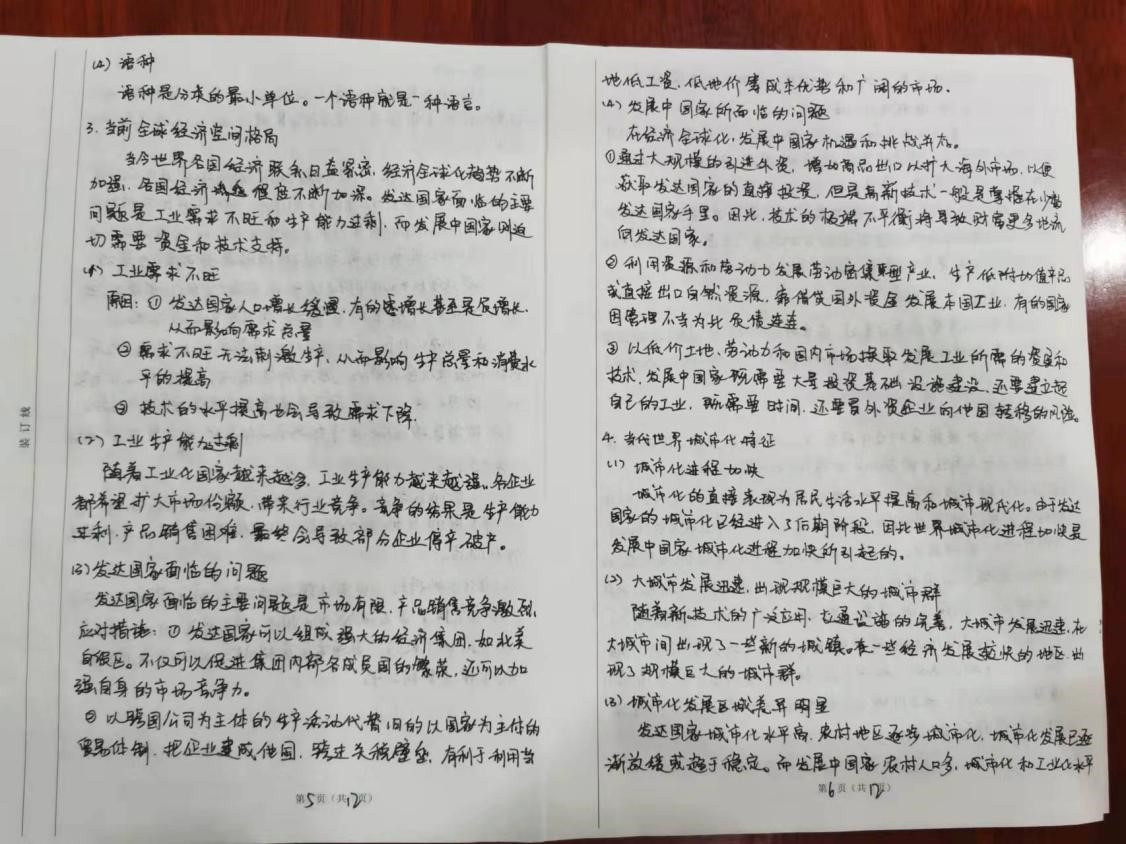 (4) 语种
语种是分类的最小单位。一个语种就是一种语言。
3. 当前全球经济空间格局
当今世界各国经济联系日益紧密，经济全球化趋势不断
加强，各国经济渗透程度不断加深。发达国家面临的主要
问题是工业需求不旺和生产能力过剩，而发展中国家则迫
切需要资金和技术支持。
(1) 工业需求不旺
原因：① 发达国家人口增长缓慢，有的零增长甚至是负增长，
从而影响需求总量
② 需求不旺无法刺激生产，从而影响生产总量和消费水
平的提高
③ 技术的水平提高也会导致需求下降.
(2) 工业生产能力过剩
随着工业化国家越来越多，工业生产能力越来越强。各企业
都希望扩大市场份额，带来行业竞争。竞争的结果是生产能力
过剩，产品销售困难，最终会导致部分企业停产破产。
(3) 发达国家面临的问题
发达国家面临的主要问题是市场有限，产品销售竞争激烈.
应对措施：① 发达国家可以组成强大的经济集团，如北美
自贸区。不仅可以促进集团内部各成员国的繁荣，还可以加
强自身的市场竞争力。
② 以跨国公司为主体的生产活动代替旧的以国家为主体的
贸易体制，把企业建成他国，跨过关税壁垒，有利于利用当
第5页（共12页）
装订线
地低工资，低地价等成本优势和广阔的市场.
(4) 发展中国家所面临的问题
在经济全球化，发展中国家机遇和挑战并存。
①通过大规模的引进外资，增加商品出口以扩大海外市场，以便
获取发达国家的直接投资，但是高新技术一般是掌握在少数
发达国家手里。因此，技术的极端不平衡将导致财富更多地流
向发达国家。
② 利用资源和劳动力发展劳动密集型产业，生产低附加值产品
或直接出口自然资源，靠借贷国外资金发展本国工业，有的国家
因管理不当为此负债连连。
③ 以低价土地、劳动力和国内市场换取发展工业所需的资金和
技术，发展中国家既需要大量投资基础设施建设，还要建立起
自己的工业，既需要时间，还要冒外资企业向他国转移的风险。
4. 当代世界城市化特征
(1) 城市化进程加快
城市化的直接表现为居民生活水平提高和城市现代化。由于发达
国家的城市化已经进入了后期阶段，因此世界城市化进程加快是
发展中国家城市化进程加快所引起的。
(2) 大城市发展迅速，出现规模巨大的城市群
随着新技术的广泛应用，交通设施的完善，大城市发展迅速，在
大城市间出现了一些新的城镇。在一些经济发展较快的地区，出
现了规模巨大的城市群。
(3) 城市化发展区域差异明显
发达国家城市化水平高，农村地区逐步城市化，城市化发展已逐
渐放缓或趋于稳定。而发展中国家农村人口多，城市化和工业化水平
第6页（共12页）